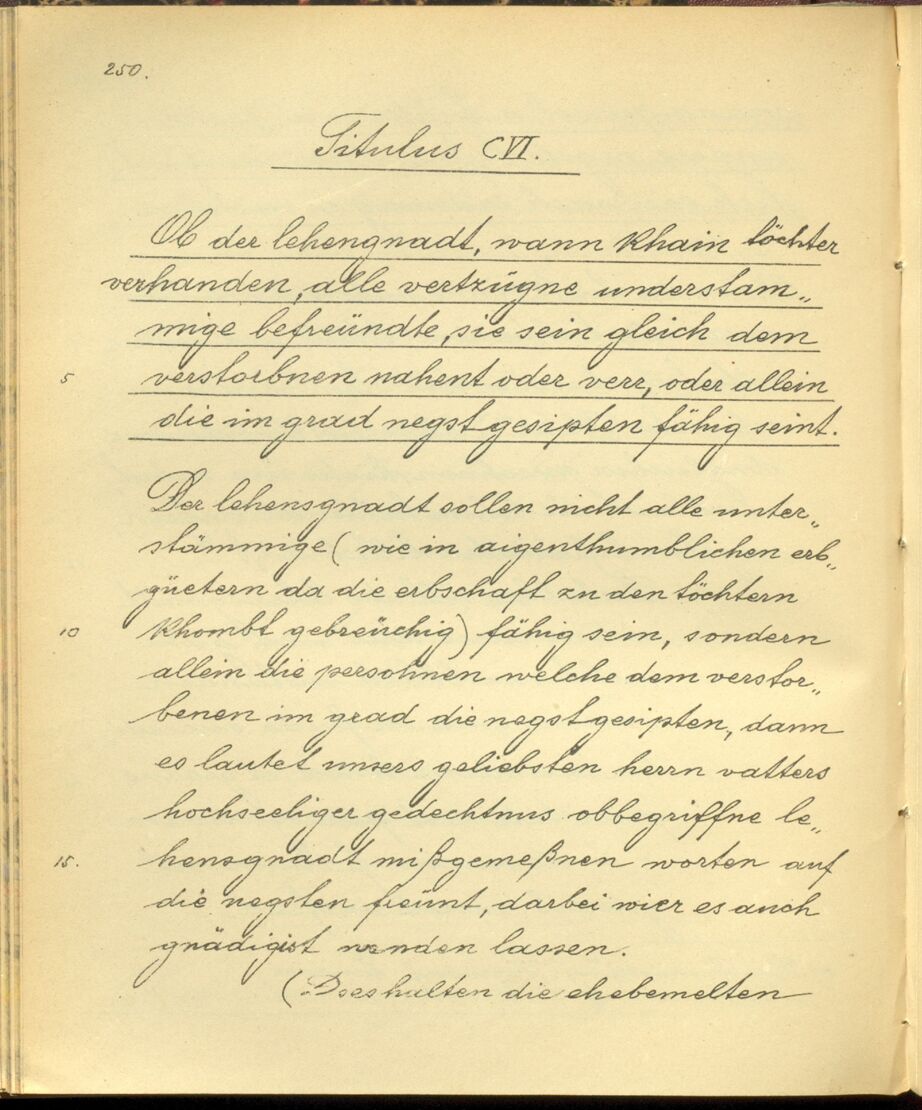 250.
Titulus CVI.
Ob der lehengnadt, wann khain töchter
verhanden, alle vertzügne understam„
mige befreündte, sie sein gleich dem
5 verstorbnen nahent oder verr, oder allein
die im grad negst gesipten fähig seint.
Der lehensgnadt sollen nicht alle unter„
stämmige (wie in aigenthumblichen erb„
güetern da die erbschaft zu den töchtern
10 khombt gebreüchig) fähig sein, sondern
allein die persohnen welche dem verstor„
benen im grad die negst gesipten, dann
es lautet unsers geliebsten herrn vatters
hochseeliger gedechtnus obbegriffne le„
15. hensgnadt mißgemeßnen worten auf
die negsten freünt, darbei wier es auch
gnädigist wenden lassen.
(Dses halten die ehebemelten